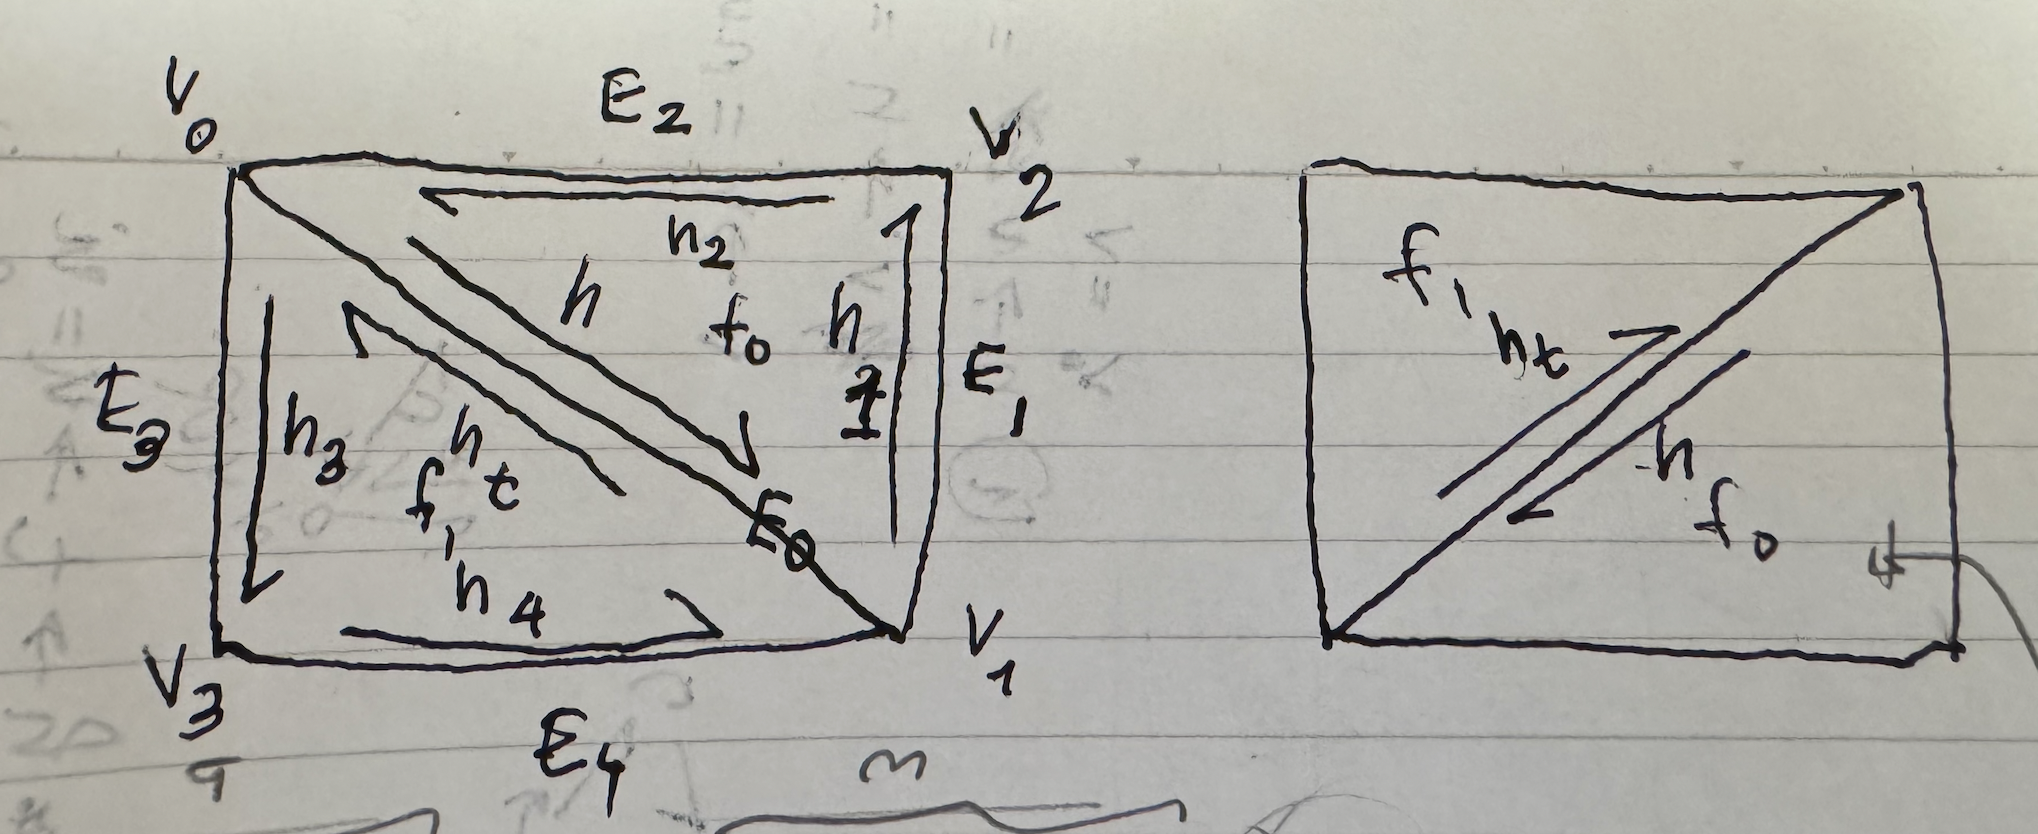 V0 E2 V2
h2
h f0 h1 E1
E3 h3 ht
f1 E0
h4
V3 E4 V1
f1
ht
h
f0